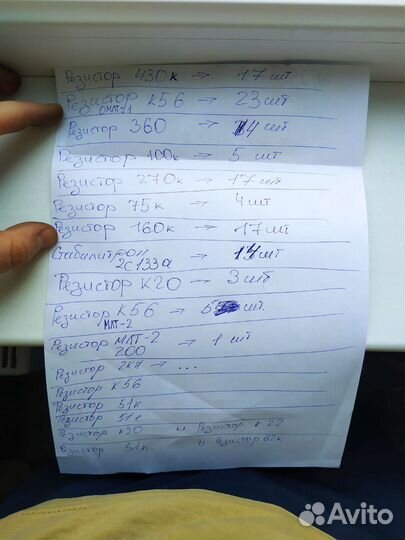 Резистор 430к → 17 шт
Резистор К56 → 23 шт
ОМЛТ-1
Резистор 360 → 14 шт
Резистор 100к → 5 шт
Резистор 270к → 17 шт
Резистор 75к → 4 шт
Резистор 160к → 17 шт
Стабилитрон → 14 шт
2С133а
Резистор К20 → 3 шт
Резистор К56 → 5 шт.
МЛТ-2
Резистор МЛТ-2 → 1 шт
200
Резистор 2К7 → ...
Резистор К56
Резистор 51к
Резистор 51
Резистор К20 и Резистор К22
Резистор 51к и Резистор 62к
Avito